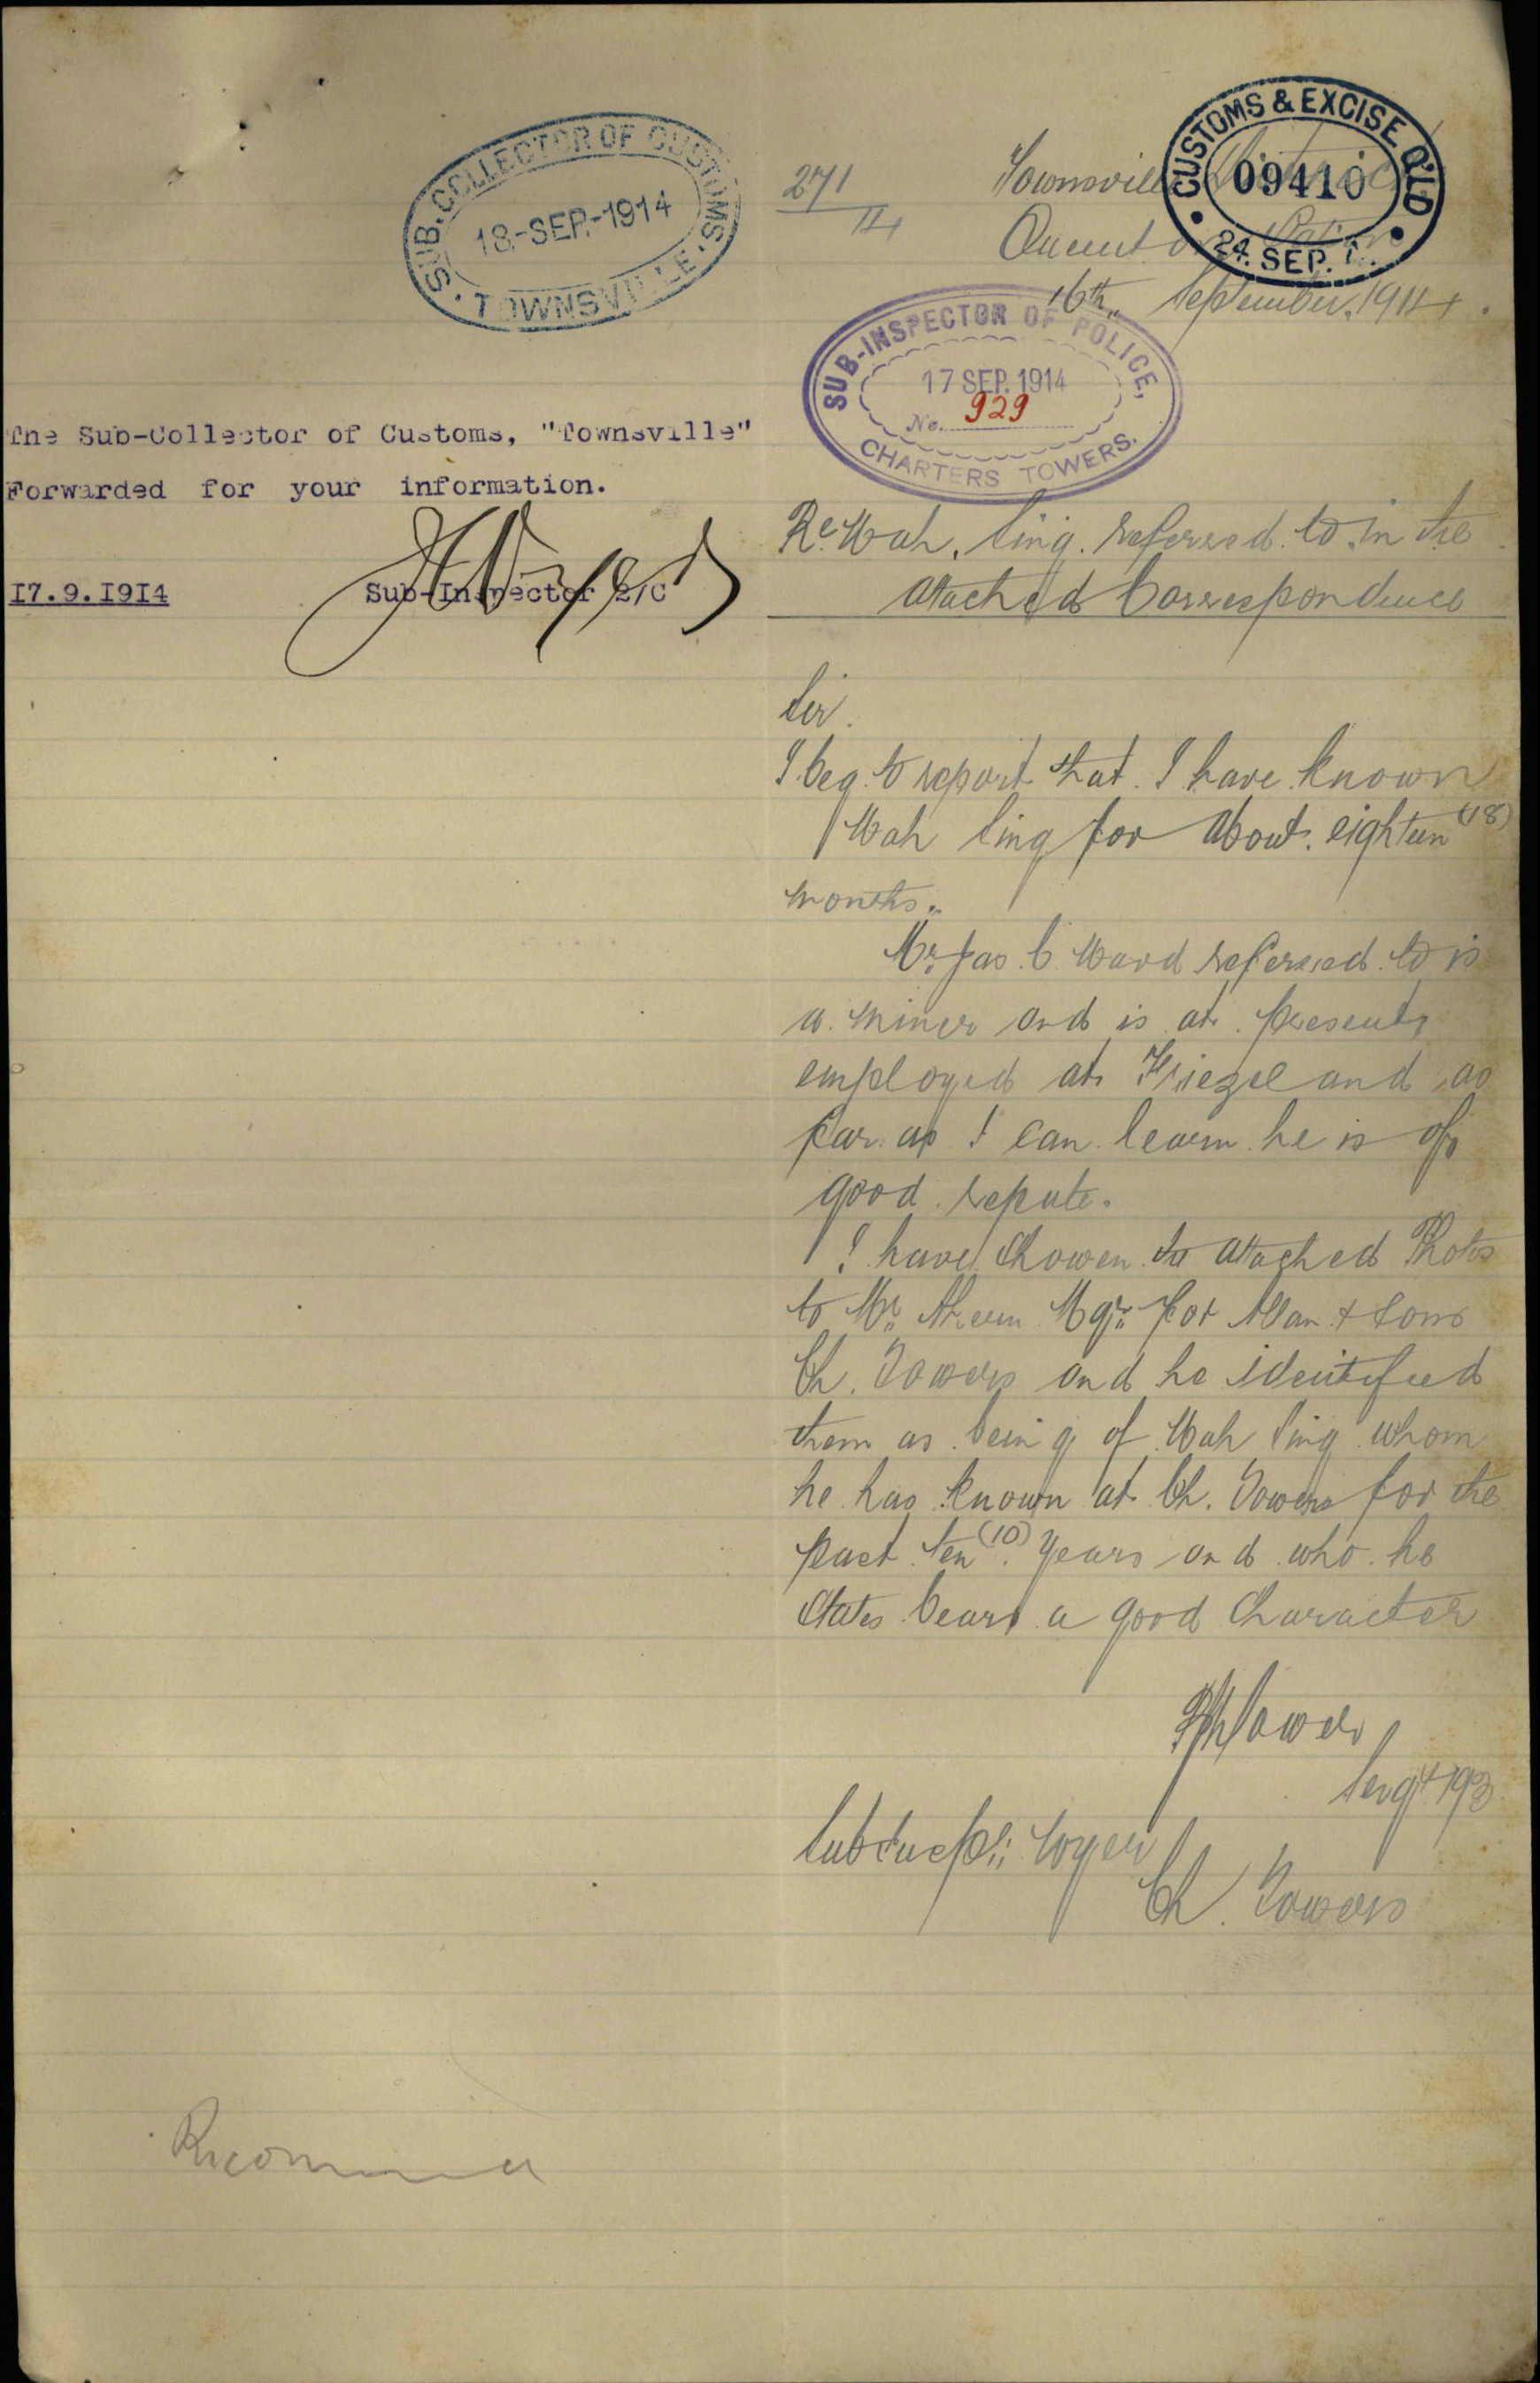 SUB-COLLECTOR OF CUSTOMS.
18-SEP.-1914
TOWNSVILLE.
271
14
Townsville District
CUSTOMS & EXCISE Q'LD
09410
24. SEP. 1
Queenton Station
16th September. 1914.
SUB-INSPECTOR OF POLICE,
17 SEP. 1914
No. 929
CHARTERS TOWERS.
The Sub-Collector of Customs, "Townsville"
Forwarded for your information.
17.9.1914 Sub-Inspector 2/C
Re Wah Sing. referred to in the
attached Correspondence
Sir.
I beg to report that I have known
Wah Sing for about eighteen (18)
months.
Mr Jas. C Ward referred to is
a miner and is at present
employed at and as
far as I can learn he is of
good repute.
I have Showen the attached Photos
to Mr Mgr for Allan & Sons
Ch. Towers and he identified
them as being of Wah Sing whom
he has known at Ch. Towers for the
past ten (10) years and who he
States bears a good Character
Sergt 193
Sub Inspr
Ch. Towers